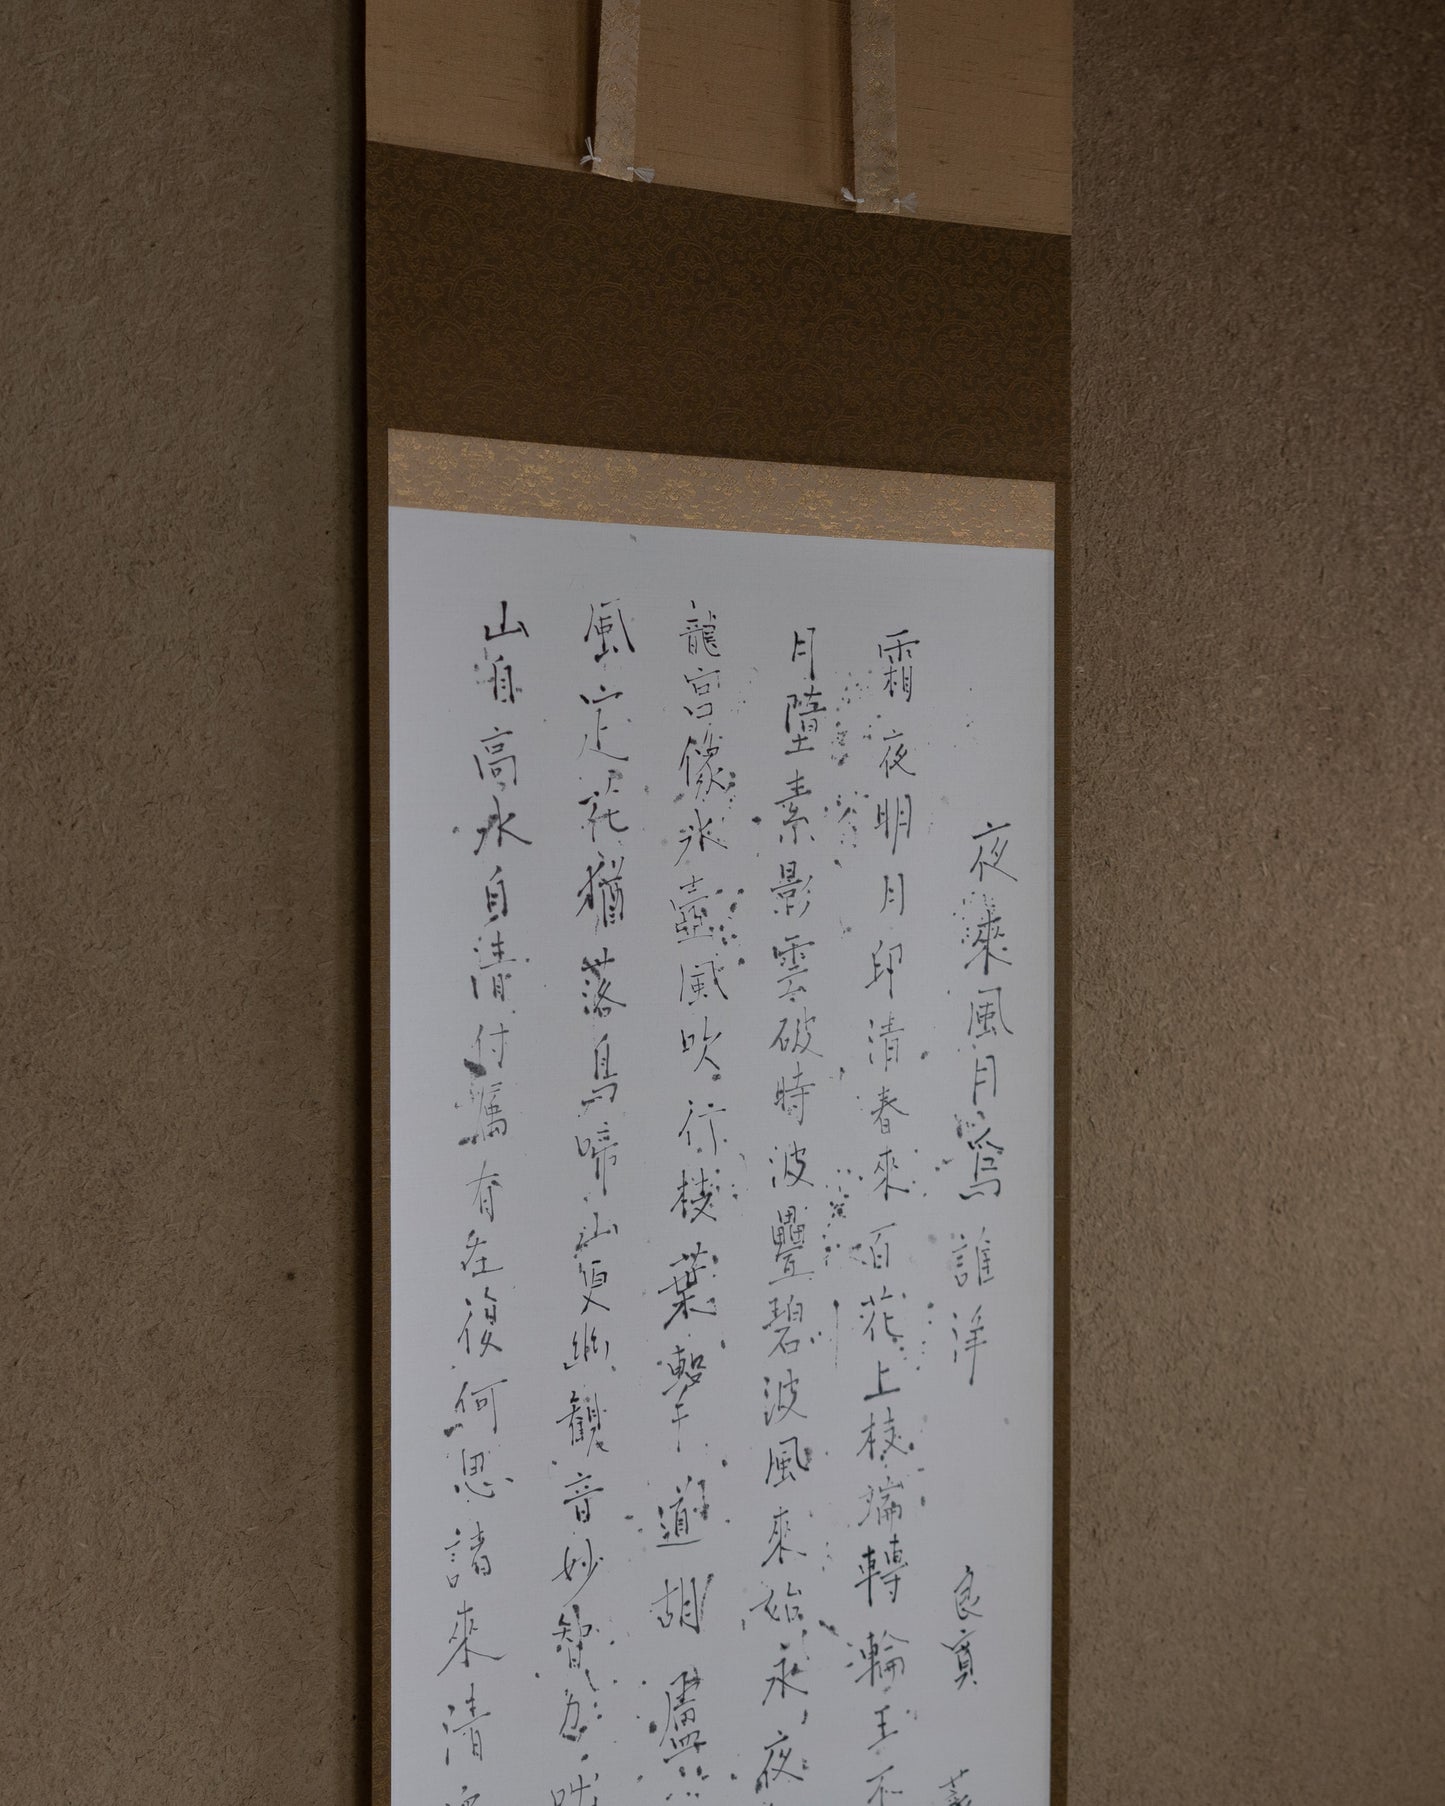 夜來風月為誰浄 良寛
霜夜明月印清春來百花上枝端轉輪王不
月墮素影雲破時波疊碧波風來始永夜
龍宮像氷壺風吹行棲葉擊午道胡盧
風定花猶落鳥啼山更幽観音妙智力
山自高水自清付嘱有在復何思請來清